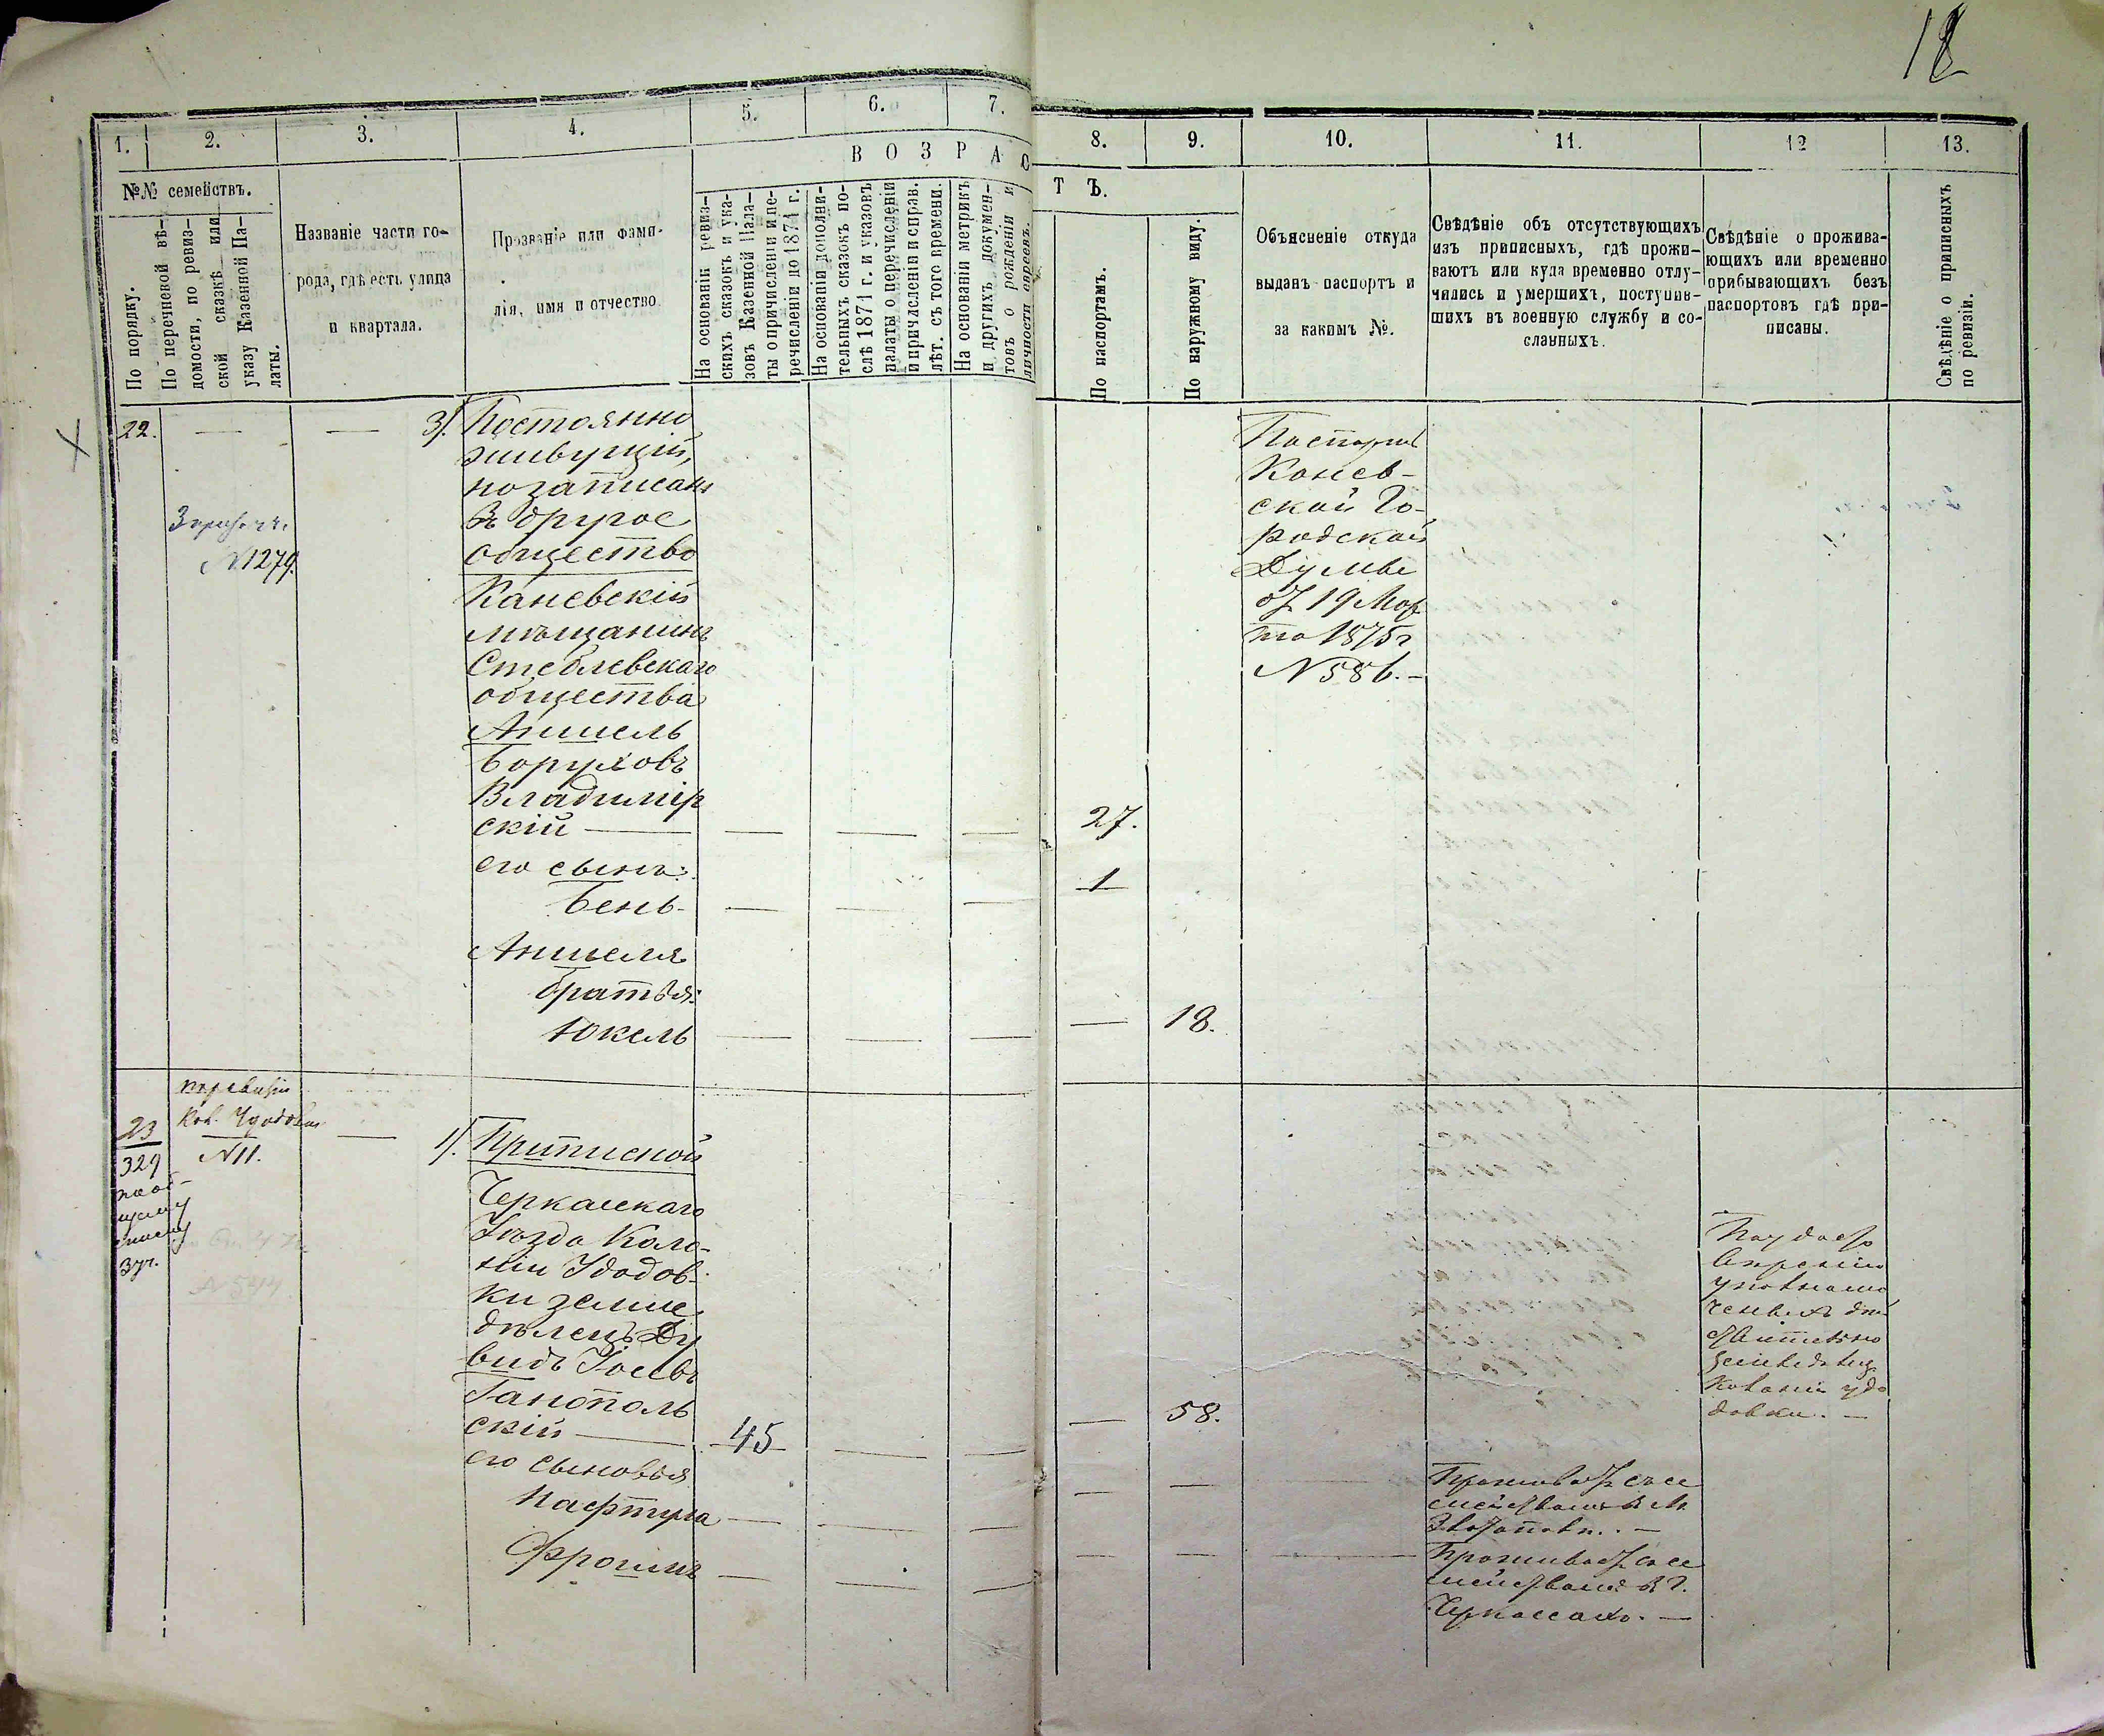 18
1.
2.
3.
4.
5.
6.
7.
8.
9.
10.
11.
12
13.
№№ семействъ.
По порядку.
По перечневой вѣ-
домости, по ревиз-
ской сказкѣ или
указу Казенной Па-
латы.
Названіе части го-
рода, гдѣ есть улица
и квартала.
Прозваніе или фами-
лія, имя и отчество.
ВОЗРАС
ТЪ.
На основаніи ревиз-
скихъ сказокъ и ука-
зовъ Казенной Пала-
ты о причисленіи и пе-
речисленіи до 1871 г.
На основаніи дополни-
тельныхъ сказокъ по-
слѣ 1871 г. и указовъ
палаты о перечисленіи
и причисленіи и справ.
лѣт. съ того времени.
На основаніи метрикъ
и другихъ докумен-
товъ о рожденіи и
личности евреевъ.
По паспортамъ.
По наружному виду.
Объясненіе откуда
выданъ паспортъ и
за какимъ №.
Свѣдѣніе объ отсутствующихъ
изъ приписныхъ, гдѣ прожи-
ваютъ или куда временно отлу-
чились и умершихъ, поступив-
шихъ въ военную службу и со-
сланныхъ.
Свѣдѣніе о прожива-
ющихъ или временно
прибывающихъ безъ
паспортовъ гдѣ при-
писаны.
Свѣдѣніе о приписныхъ
по ревизіи.
22.
№1279.
3/. Постоянно
живущій,
но записанъ
въ другое
общество
Каневскій
мѣщанинъ
Стеблевскаго
общества
Аншель
Боруховъ
Владимір
скій
27.
его сынъ:
Бень
1
Аншеля
братья:
Юкель
18.
Паспортъ
Канев-
ской Го-
родской
Думы
отъ 19 Мар
та 1875 г
№586.-
23
329
по об-
щему
списку
3 уч.
по ревизіи
Кол. Удодовки
№11.
1/. Приписной
Черкасскаго
Уѣзда Коло-
ніи Удодов-
ки земле
дѣлецъ Ду
видъ Іосевъ
Ганополь
скій
45
58.
его сыновья
Нафтула
Фроимъ
дѣ
ствительно
земледѣлец
Колоніи Удо
довки. —
Проживаетъ съ се
мействомъ въ м.
Проживаетъ съ се
мействомъ въ г.
Черкассахъ. —